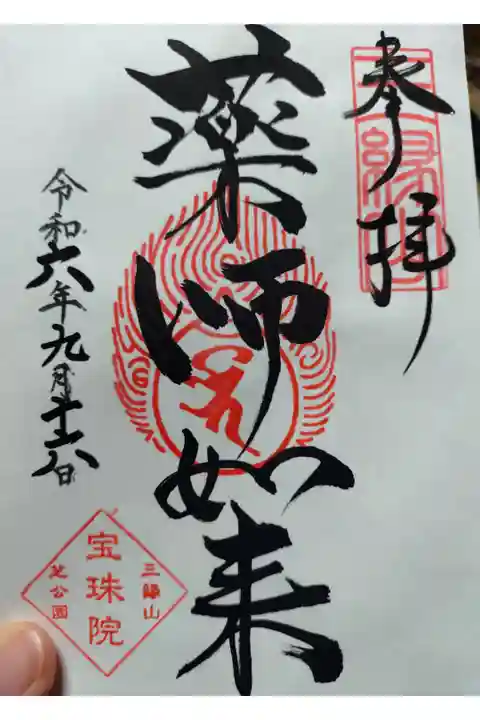 奉拝
三縁山
薬師如来
令和六年九月十六日
三縁山
宝珠院
芝公園